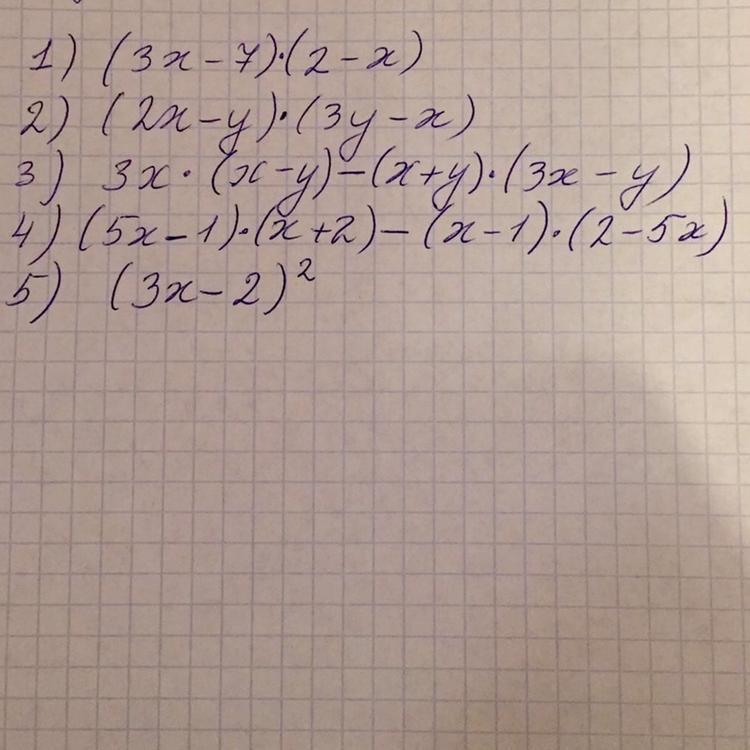 1) (3x-7)·(2-x)
2) (2x-y)·(3y-x)
3) 3x·(x-y)-(x+y)·(3x-y)
4) (5x-1)·(x+2)-(x-1)·(2-5x)
5) (3x-2)²